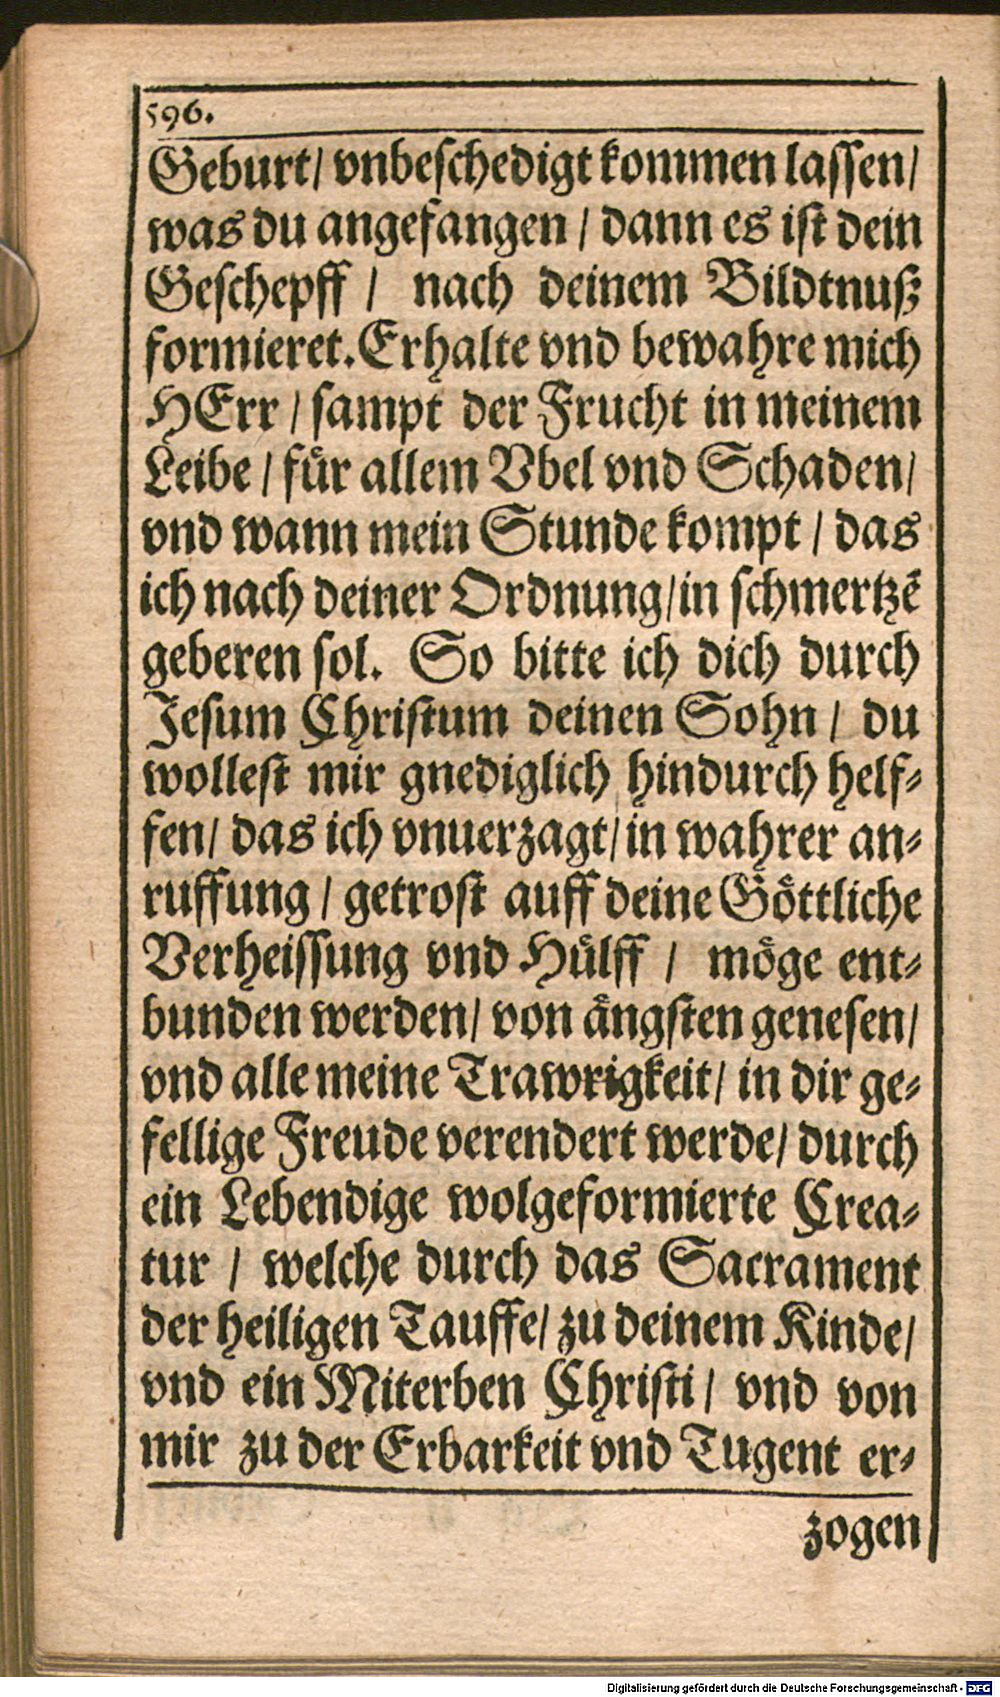 596.
Geburt/ vnbeschedigt kommen lassen/
was du angefangen / dann es ist dein
Geschepff / nach deinem Bildtnuß
formieret. Erhalte vnd bewahre mich
HErr / sampt der Frucht in meinem
Leibe / für allem Vbel vnd Schaden/
vnd wann mein Stunde kompt / das
ich nach deiner Ordnung/in schmertzẽ
geberen sol. So bitte ich dich durch
Jesum Christum deinen Sohn / du
wollest mir gnediglich hindurch helf-
fen/ das ich vnuerzagt/in wahrer an-
ruffung / getrost auff deine Göttliche
Verheissung vnd Hülff / möge ent-
bunden werden/ von ängsten genesen/
vnd alle meine Trawrigkeit/ in dir ge-
fellige Freude verendert werde/ durch
ein Lebendige wolgeformierte Crea-
tur / welche durch das Sacrament
der heiligen Tauffe/ zu deinem Kinde/
vnd ein Miterben Christi / vnd von
mir zu der Erbarkeit vnd Tugent er-
zogen
Digitalisierung gefördert durch die Deutsche Forschungsgemeinschaft - DFG